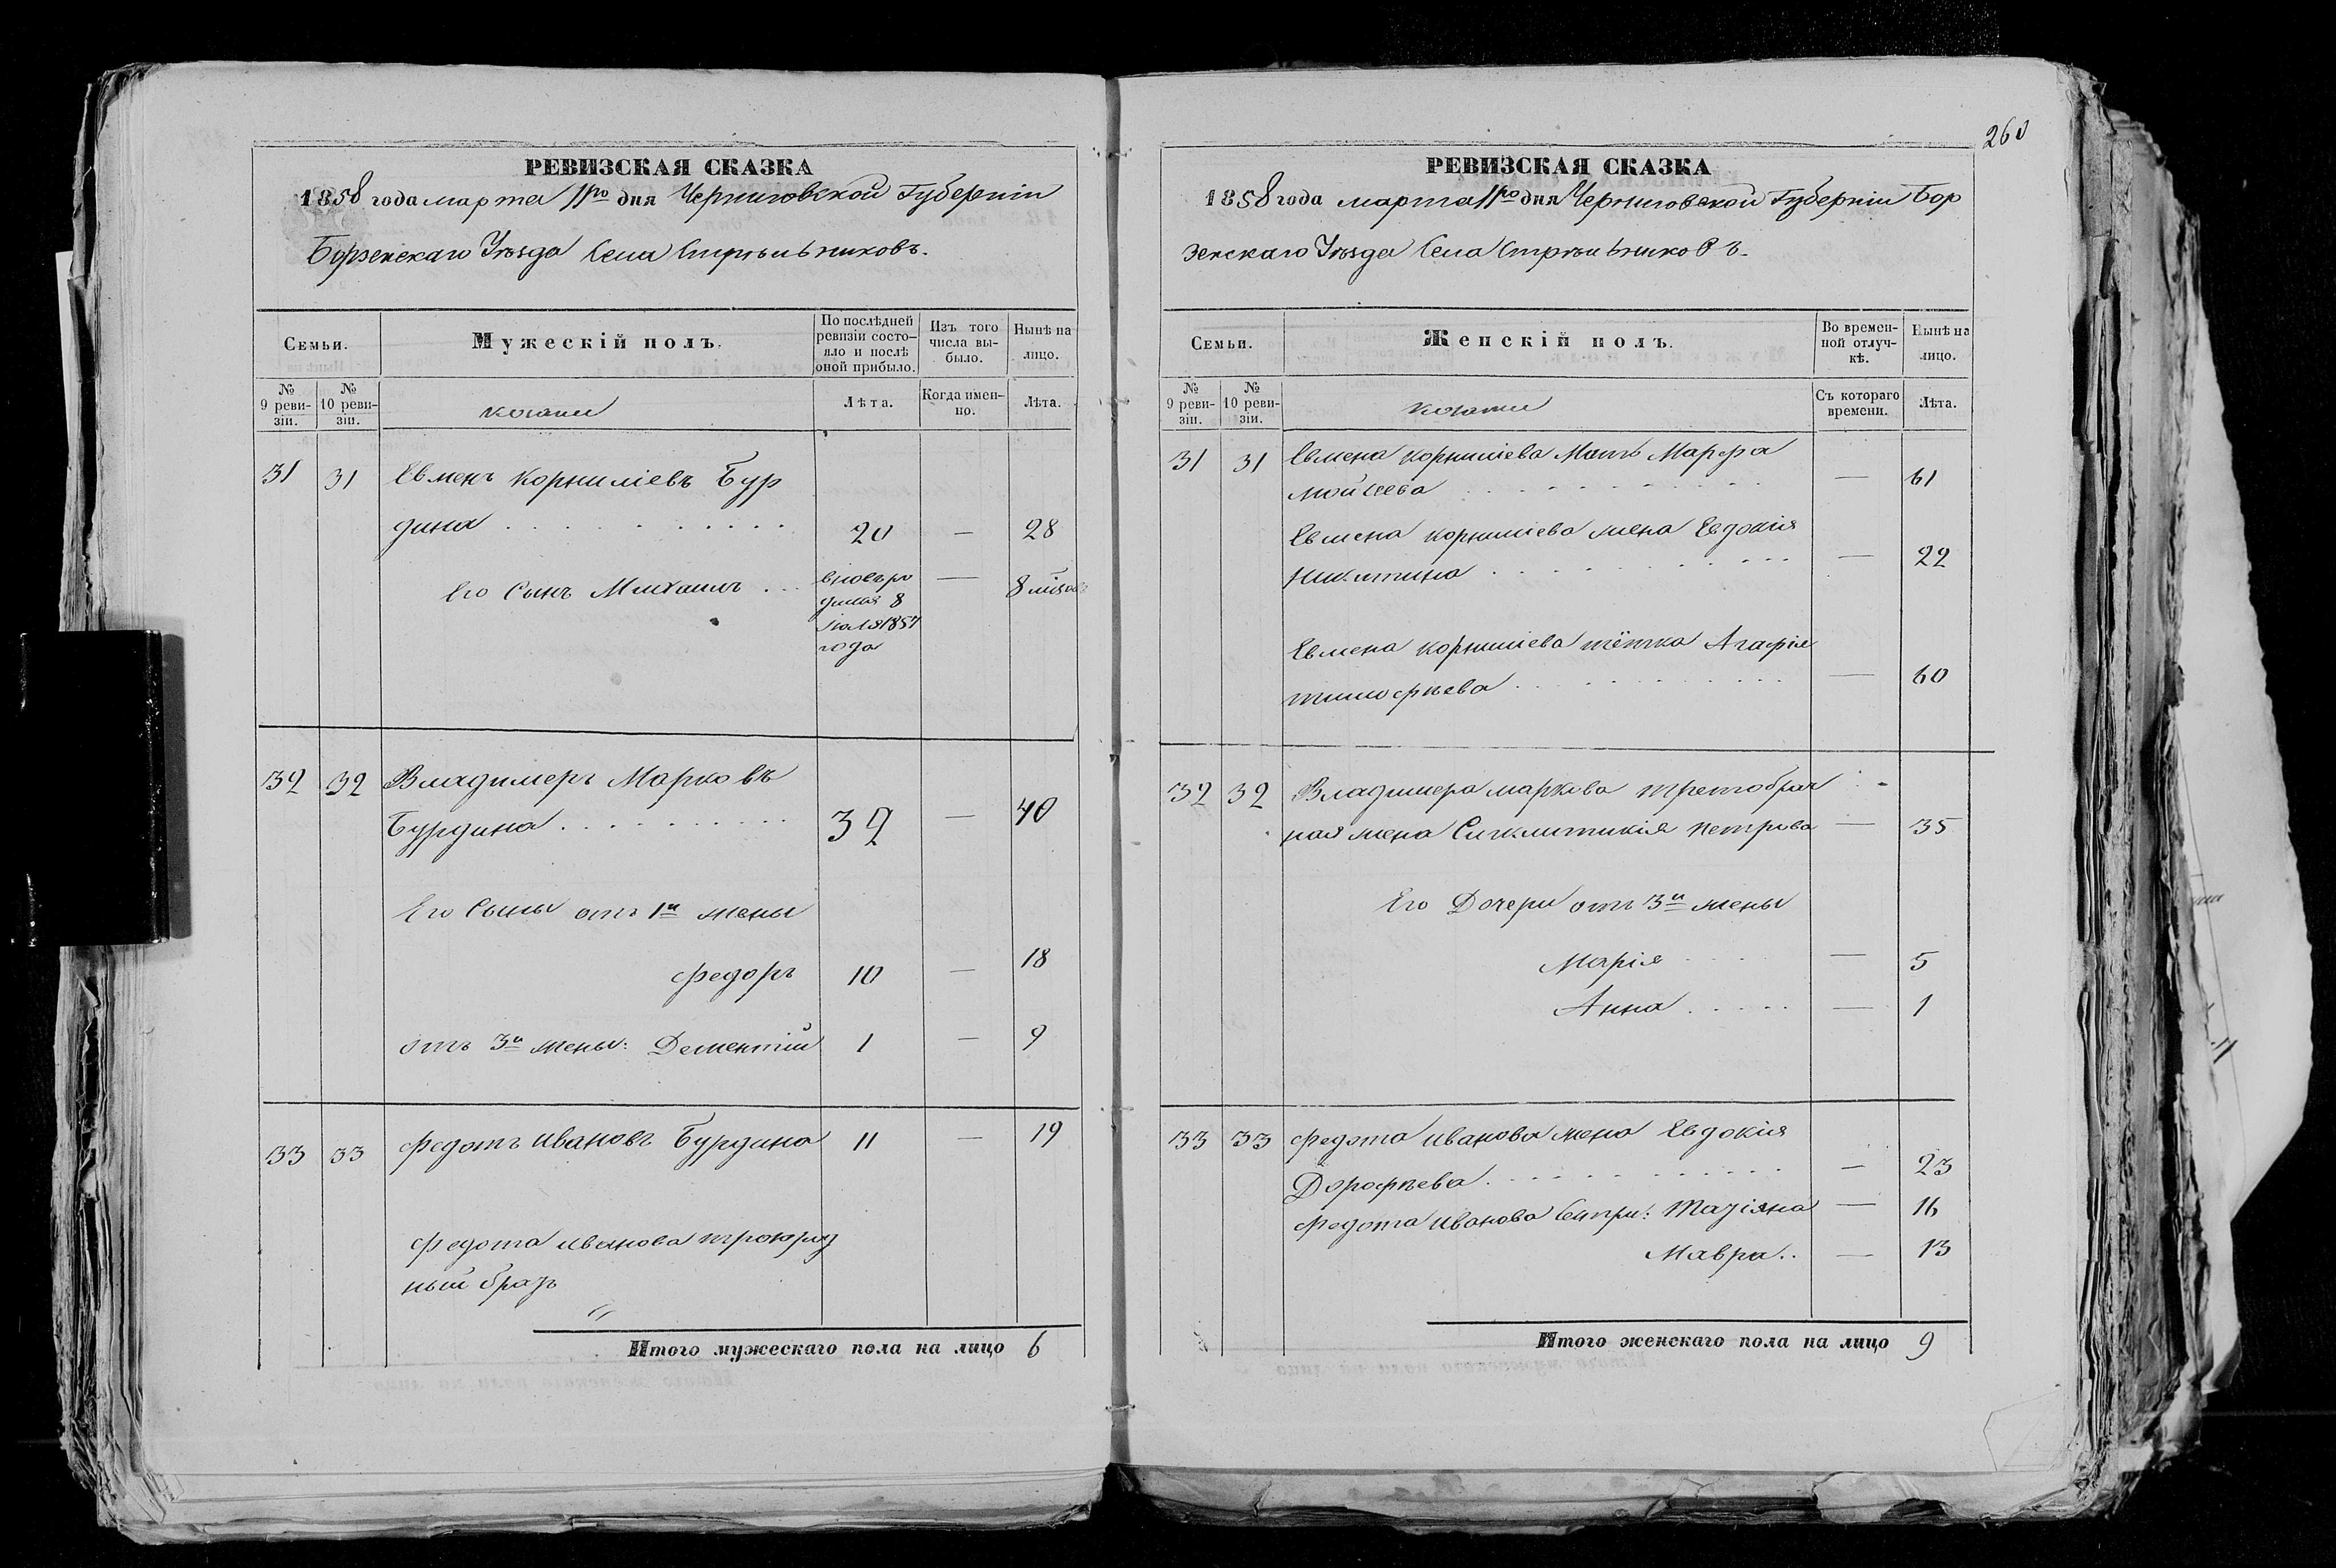 260
РЕВИЗСКАЯ СКАЗКА
1858 года марта 11го дня Черниговской Губерніи
Борзенскаго Уѣзда Села Стрѣльниковъ.
Семьи.
Мужескій полъ.
По послѣдней ревизіи состояло и послѣ оной прибыло.
Изъ того числа выбыло.
Нынѣ на лицо.
№ 9 ревизіи.
№ 10 ревизіи.
козаки
Лѣта.
Когда именно.
Лѣта.
31 31 Евменъ Корниліевъ Бур
дина . . . . . . . . . . 20 — 28
Его Сынъ Михаилъ . . . вновь ро — 8 мѣсяцовъ
дился 8
Іюля 1857
года
32 32 Владимеръ Марковъ
Бурдина . . . . . . . . . 32 — 40
Его Сыны отъ 1й жены
Федоръ 10 — 18
отъ 3й жены: Дементій 1 — 9
33 33 Федотъ Ивановъ Бурдина 11 — 19
Федота Иванова троюрод
ный братъ
"
Итого мужескаго пола на лицо 6
РЕВИЗСКАЯ СКАЗКА
1858 года марта 11го дня Черниговской Губерніи Бор
зенскаго Уѣзда Села Стрѣльниковъ.
Семьи.
Женскій полъ.
Во временной отлучкѣ.
Нынѣ на лицо.
№ 9 ревизіи.
№ 10 ревизіи.
козаки
Съ котораго времени.
Лѣта.
31 31 Евмена Корниліева Мать Марфа
Мойсеева . . . . . . . . . . — 61
Евмена Корниліева жена Евдокія
Никитина . . . . . . . . . . — 22
Евмена Корниліева тётка Агафія
Тимофѣева . . . . . . . . . . — 60
32 32 Владимера Маркова третобрач
ная жена Сигклитикія Петрова — 35
Его Дочери отъ 3й жены
Марія . . . . — 5
Анна . . . . . — 1
33 33 Федота Иванова жена Евдокія
Дорофѣева . . . . . . . . . . — 23
Федота Иванова Сестры: Татіяна — 16
Мавра . . — 13
Итого женскаго пола на лицо 9